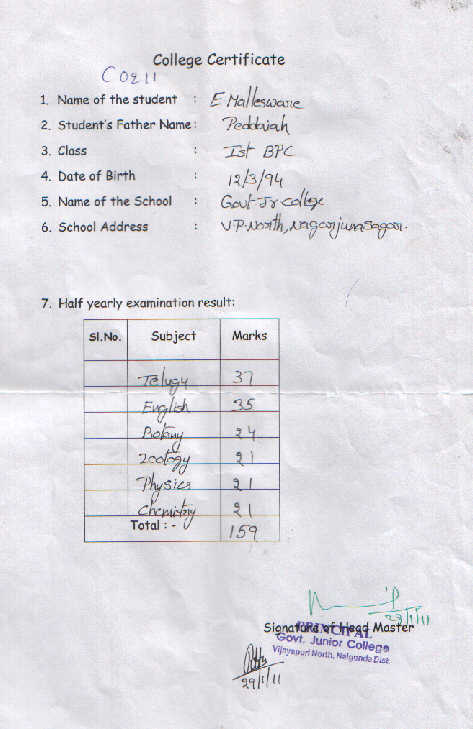 College Certificate
C0211
1. Name of the student : E Malleswarie
2. Student's Father Name: Peddaiah
3. Class : Ist BPC
4. Date of Birth : 12/3/94
5. Name of the School : Govt Jr college
6. School Address : V.P.North, Nagarjunasagar.
7. Half yearly examination result:
Sl.No. Subject Marks
Telugu 37
English 35
Botany 24
Zoology 21
Physics 21
Chemistry 21
Total : - 159
29/1/11
Signature of Head Master
PRINCIPAL
Govt. Junior College
Vijayapuri North, Nalgonda Dist.
29/1/11